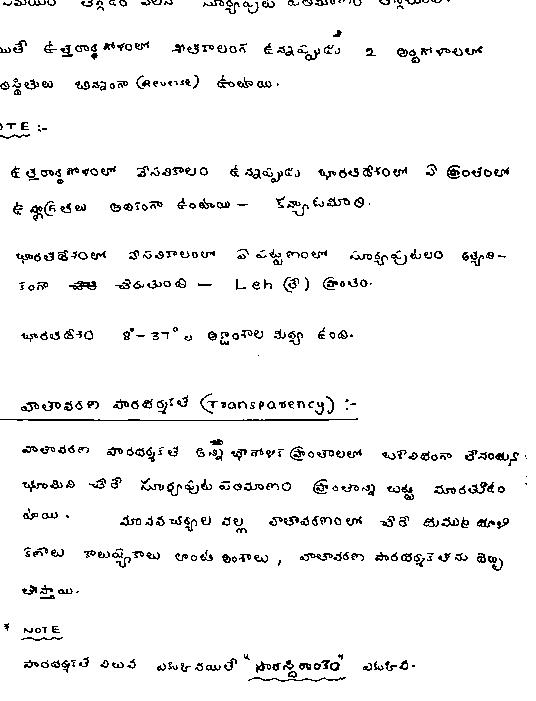 సమయం తగ్గడం వలన సూర్యపుటం పరిమాణం తగ్గుతుంది.
యితే ఉత్తరార్థగోళంలో శీతకాలంగా ఉన్నప్పుడు 2 అర్థగోళాలలో
స్థితులు భిన్నంగా (Reverse) ఉంటాయి.
NOTE :-
ఉత్తరార్థగోళంలో వేసవికాలం ఉన్నప్పుడు భారతదేశంలో ఏ ప్రాంతంలో
ఉష్ణోగ్రతలు అధికంగా ఉంటాయి - కన్యాకుమారి.
భారతదేశంలో వేసవికాలంలో ఏ పట్టణంలో సూర్యపుటం అత్యధి-
కంగా చేరుతుంది - Leh (లే) ప్రాంతం.
భారతదేశం 8° - 37° ల అక్షాంశాల మధ్య ఉంది.
వాతావరణ పారదర్శకత (Transparency) :-
వాతావరణ పారదర్శకత అన్ని భౌగోళిక ప్రాంతాలలో ఒకేవిధంగా లేనందున
భూమిని చేరే సూర్యపుటం పరిమాణం ప్రాంతాన్ని బట్టి మారుతుంటా
యి. మానవచర్యల వల్ల వాతావరణంలో చేరే దుమ్ము ధూళి
కణాలు కాలుష్యకాలు లాంటి అంశాలు, వాతావరణ పారదర్శకతను దెబ్బ
తీస్తాయి.
* NOTE
పారదర్శకత విలువ ఎక్కువయితే "పారస్థిరాంకం" ఎక్కువ.